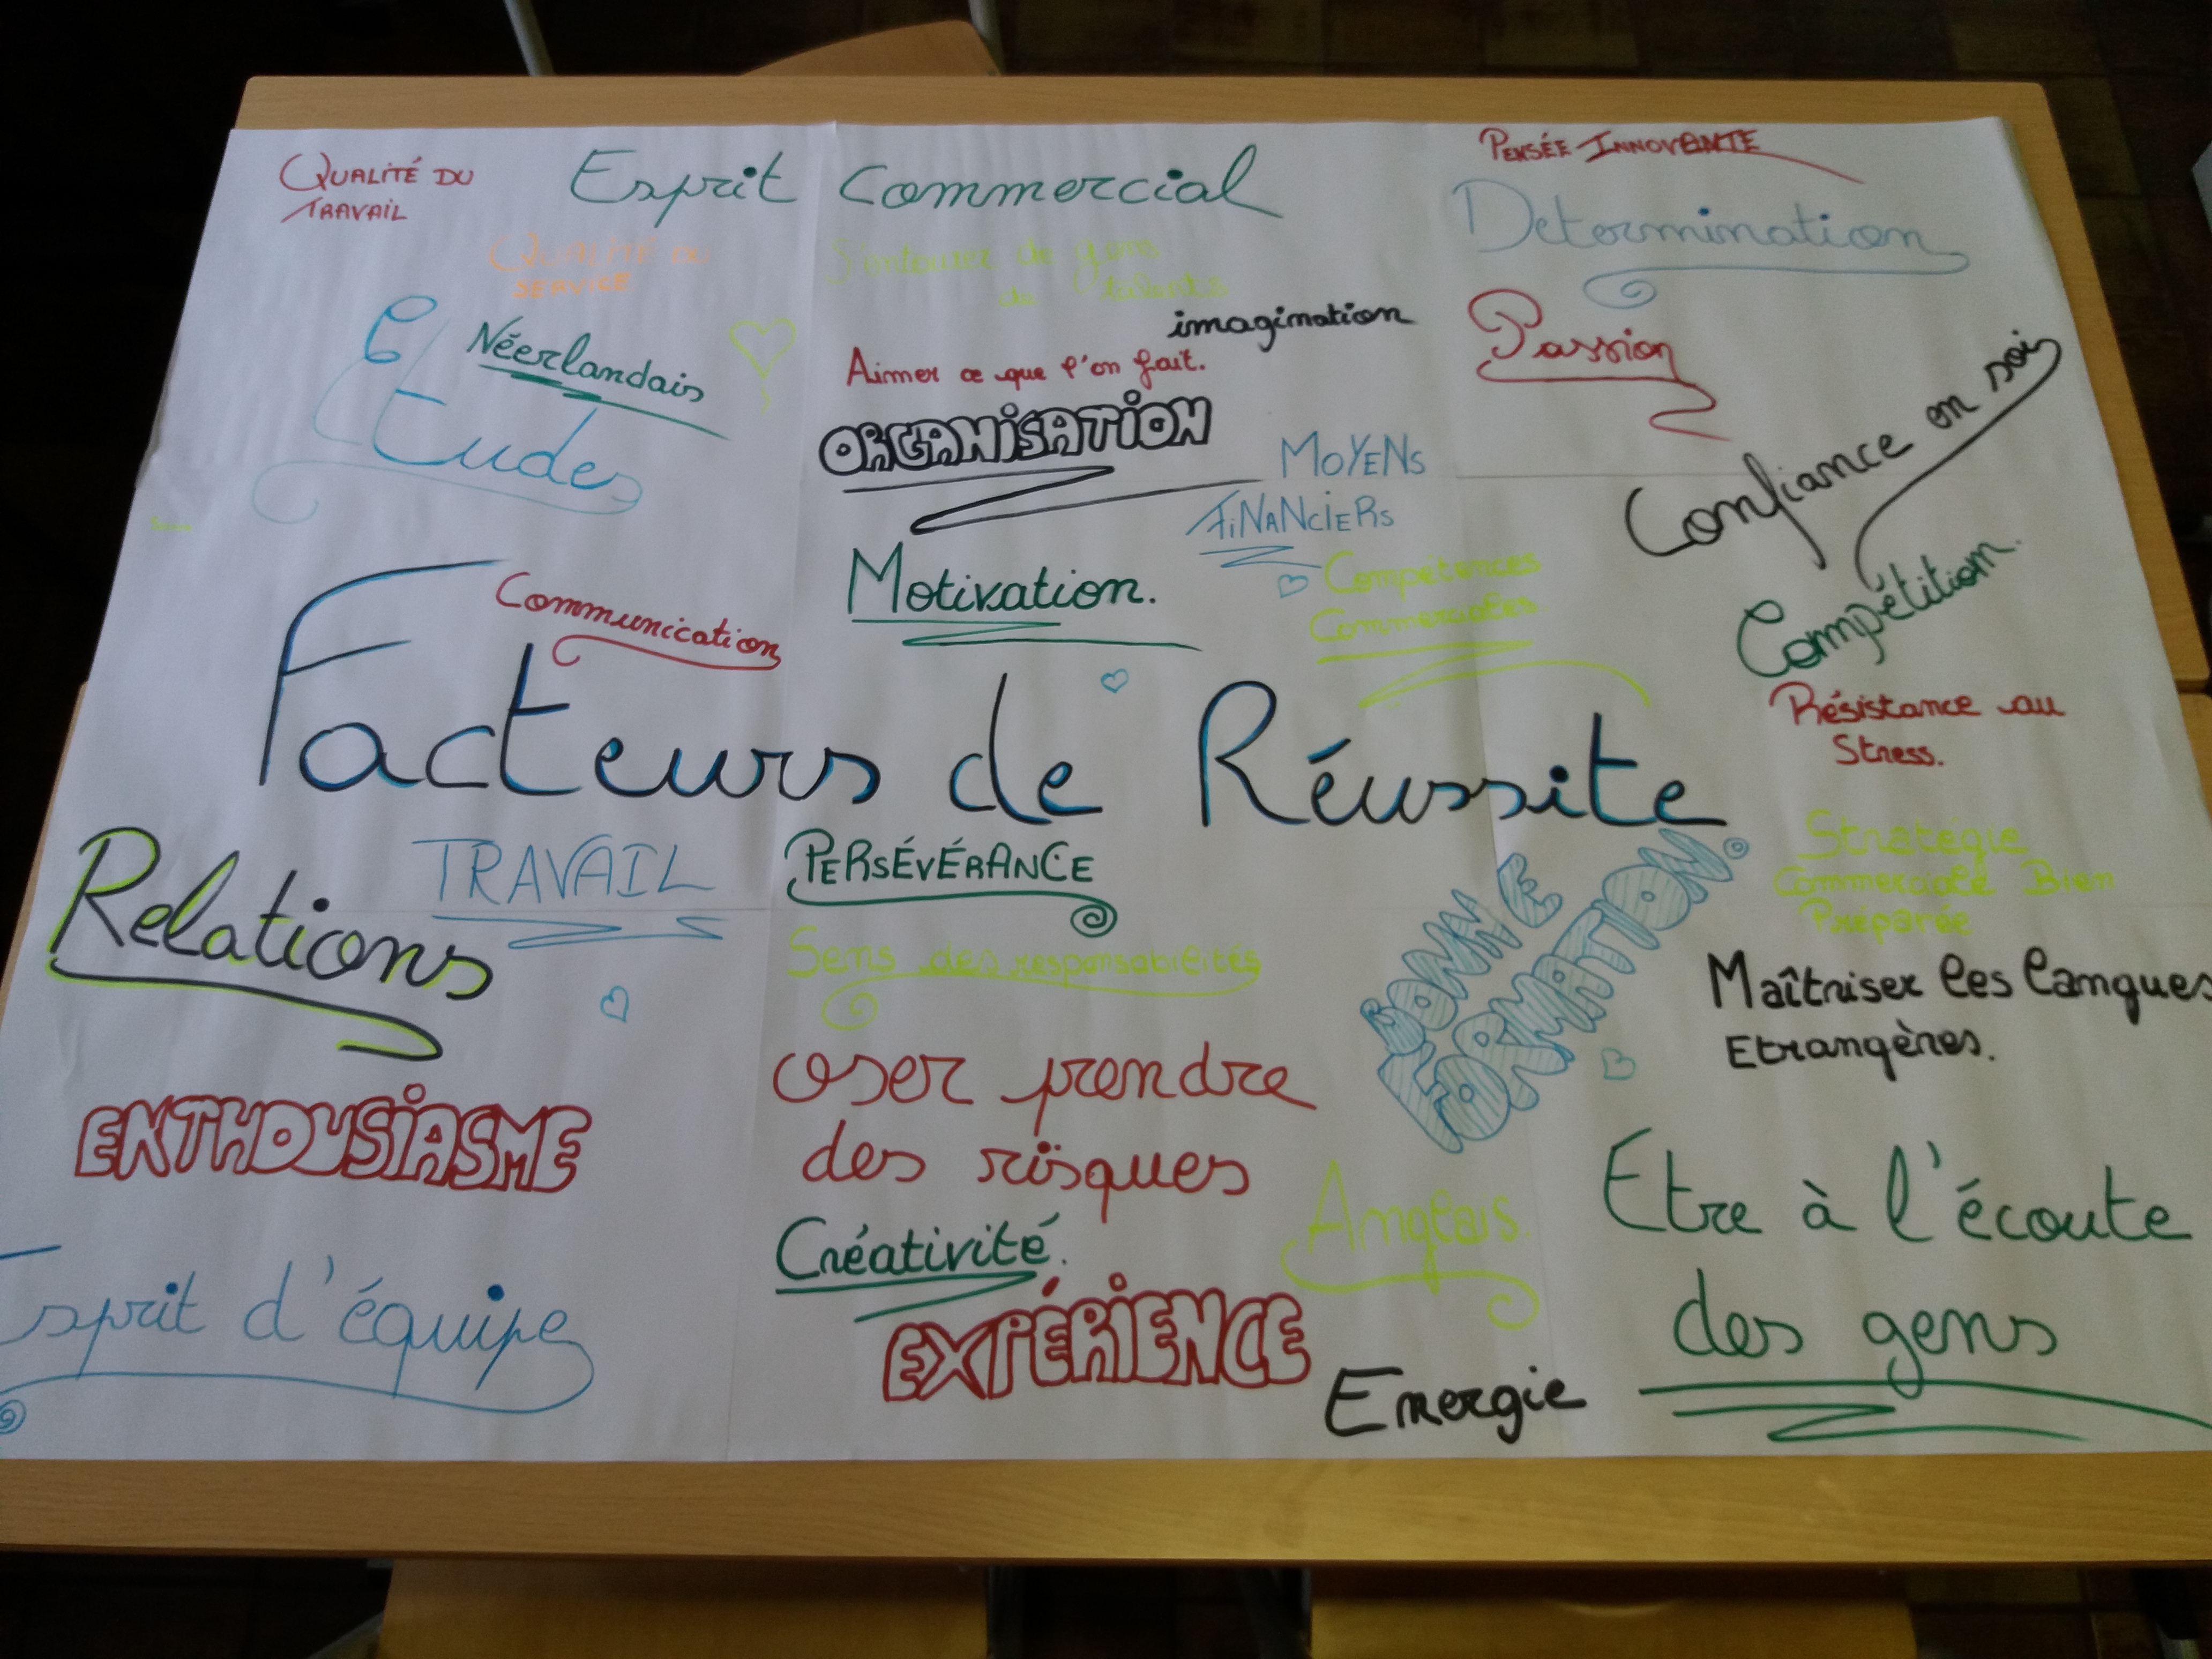 QUALITÉ DU
TRAVAIL
Esprit Commercial
PENSÉE INNOVANTE
Determination
QUALITÉ DU
SERVICE
S'entourer de gens
de talents
imagination
Néerlandais
Etudes
Aimer ce que l'on fait.
Passion
ORGANISATION
Confiance en soi
MOYENS
FINANCIERS
Communication
Motivation.
Compétences
Commerciales.
Compétition.
Facteurs de Réussite
Résistance au
Stress.
Relations
TRAVAIL
PERSÉVÉRANCE
BONNE
FORMATION
Stratégie
Commerciale Bien
Préparée
Sens des responsabilités
Maîtriser les langues
Etrangères.
ENTHOUSIASME
oser prendre
des risques
Anglais
Etre à l'écoute
des gens
Créativité.
Esprit d'équipe
EXPÉRIENCE
Energie